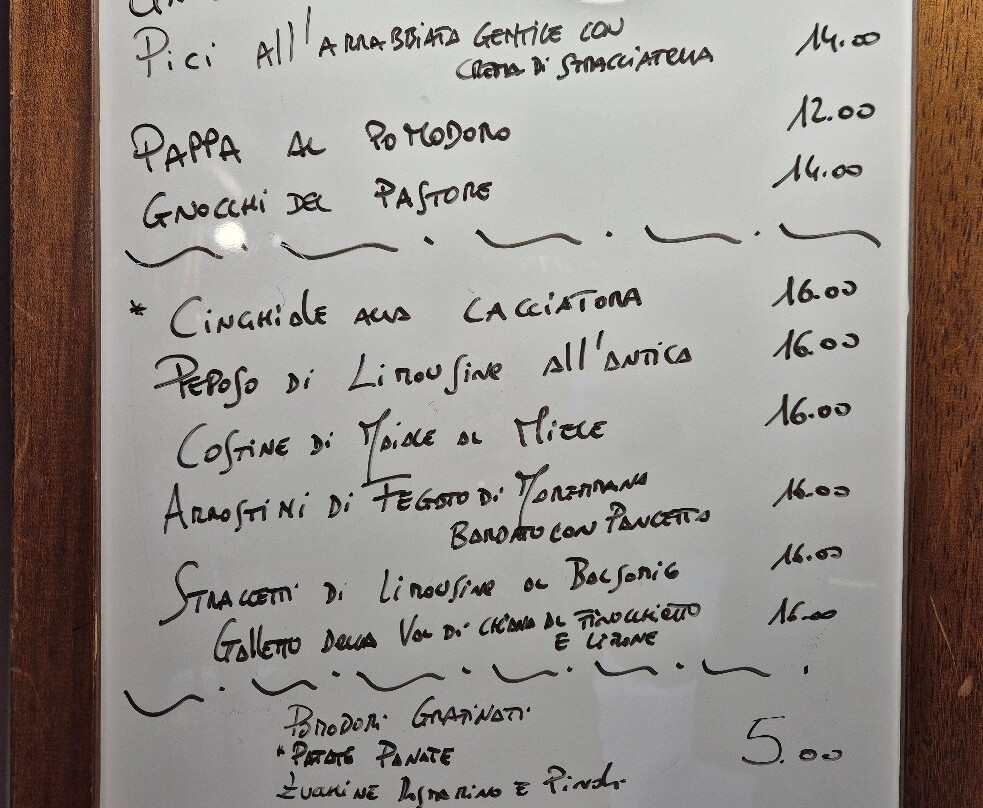 Pici All'Arrabbiata Gentile con 14.00
Crema di Stracciatella
Pappa al Pomodoro 12.00
Gnocchi del Pastore 14.00
* Cinghiale alla Cacciatora 16.00
Peposo di Limousine all'Antica 16.00
Costine di Maiale al Miele 16.00
Arrostini di Fegato di Maremmana 16.00
Bardato con Pancetta
Straccetti di Limousine al Balsamic 16.00
Galletto della Val di Chiana al Finocchietto 16.00
e Limone
Pomodori Gratinati
* Patate Panate 5.00
e Pinoli